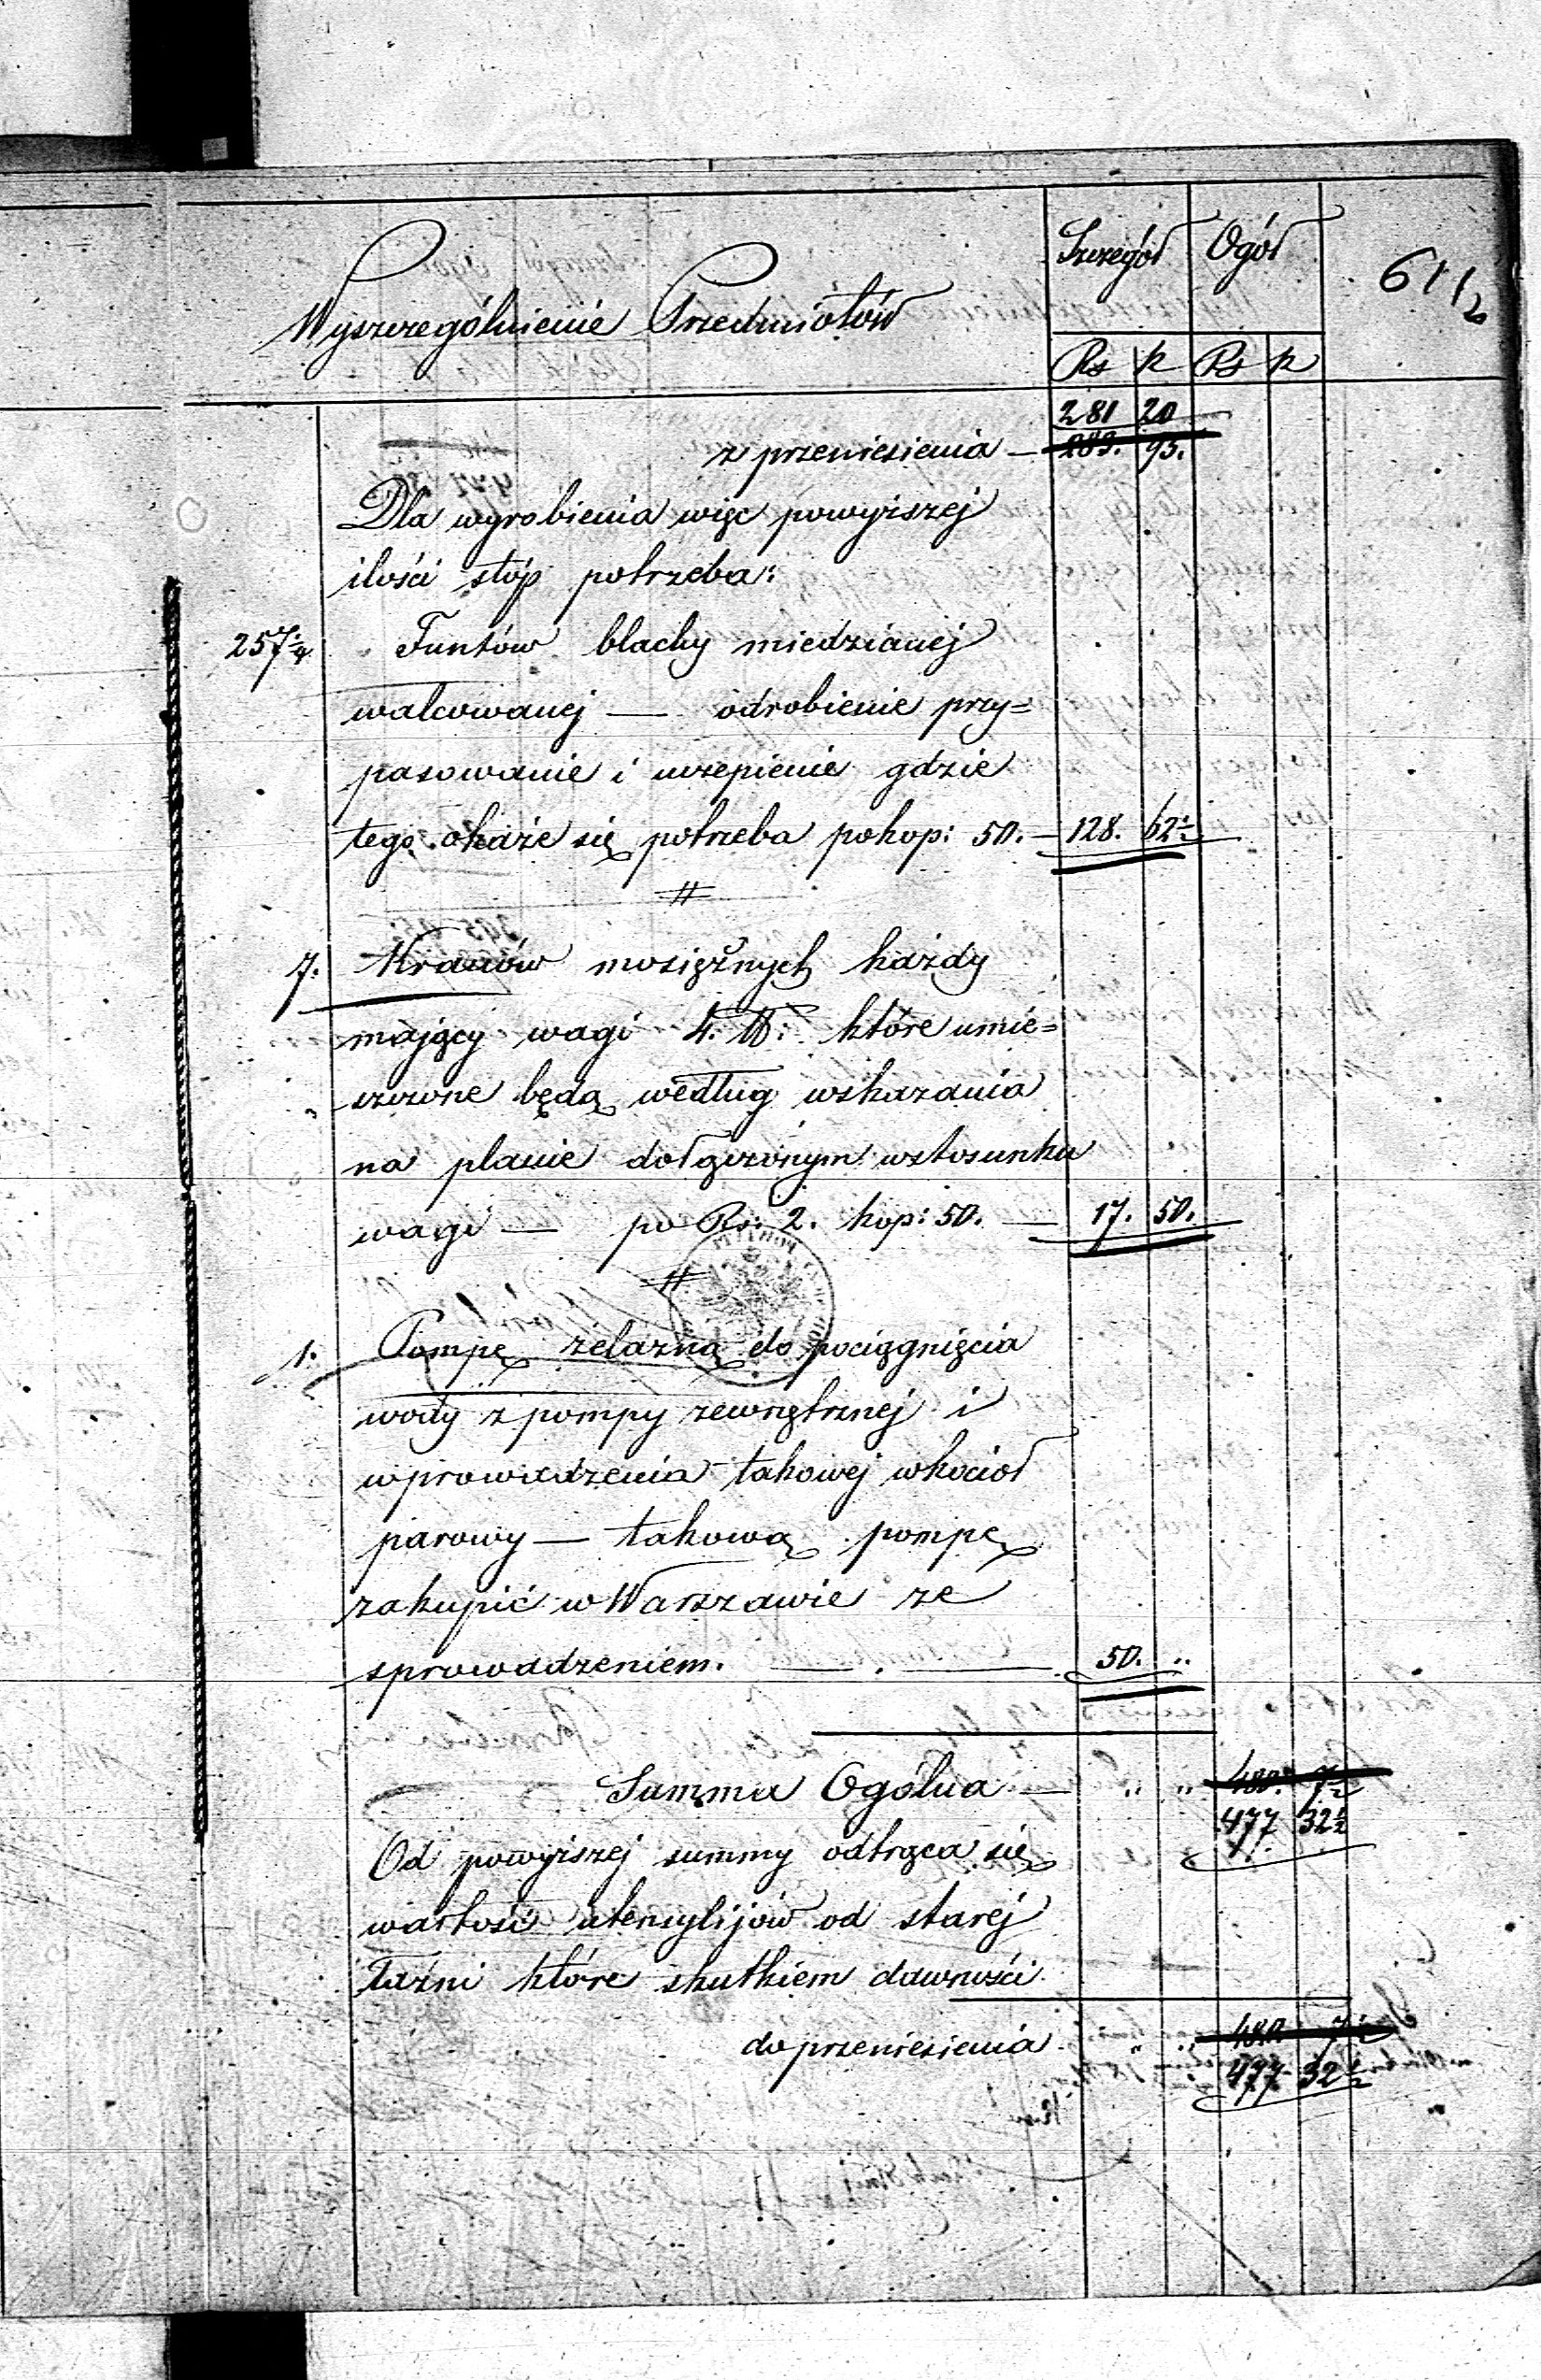 Szczegół Ogół
611/2
Wyszczególnienie Przedmiotów
Rs k Rs k
281 20
z przeniesienia — 283. 95.
Dla wyrobienia więc powyższej
ilości stóp potrzeba:
257 1/4 Funtów blachy miedzianej
walcowanej — odrobienie przy=
pasowanie i uczepienie gdzie
tego okaże się potrzeba po kop: 50. — 128. 62 1/2
7. Kranów mosiężnych każdy
mający wagi 4. ℔: które umie=
szczone będą według wskazania
na planie dołączonym w stosunku
wagi — po Rs: 2. kop: 50. — 17. 50.
1. Pompę żelazną do pociągnięcia
wody z pompy zewnętrznej i
wprowadzenia takowej w kocioł
parowy — takową pompę
zakupić w Warszawie ze
sprowadzeniem. — . — 50. ..
Summa Ogólna — " " 480. 7 1/2
477 32 1/2
Od powyższej summy odtrąca się
wartość utensylijów od starej
Łaźni które skutkiem dawności
do przeniesienia " " 480 7 1/2
477 32 1/2